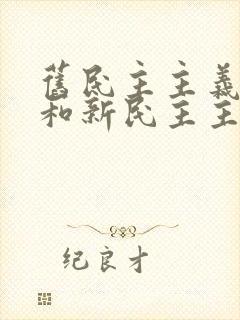 舊民主主義
和新民主主
纪良才